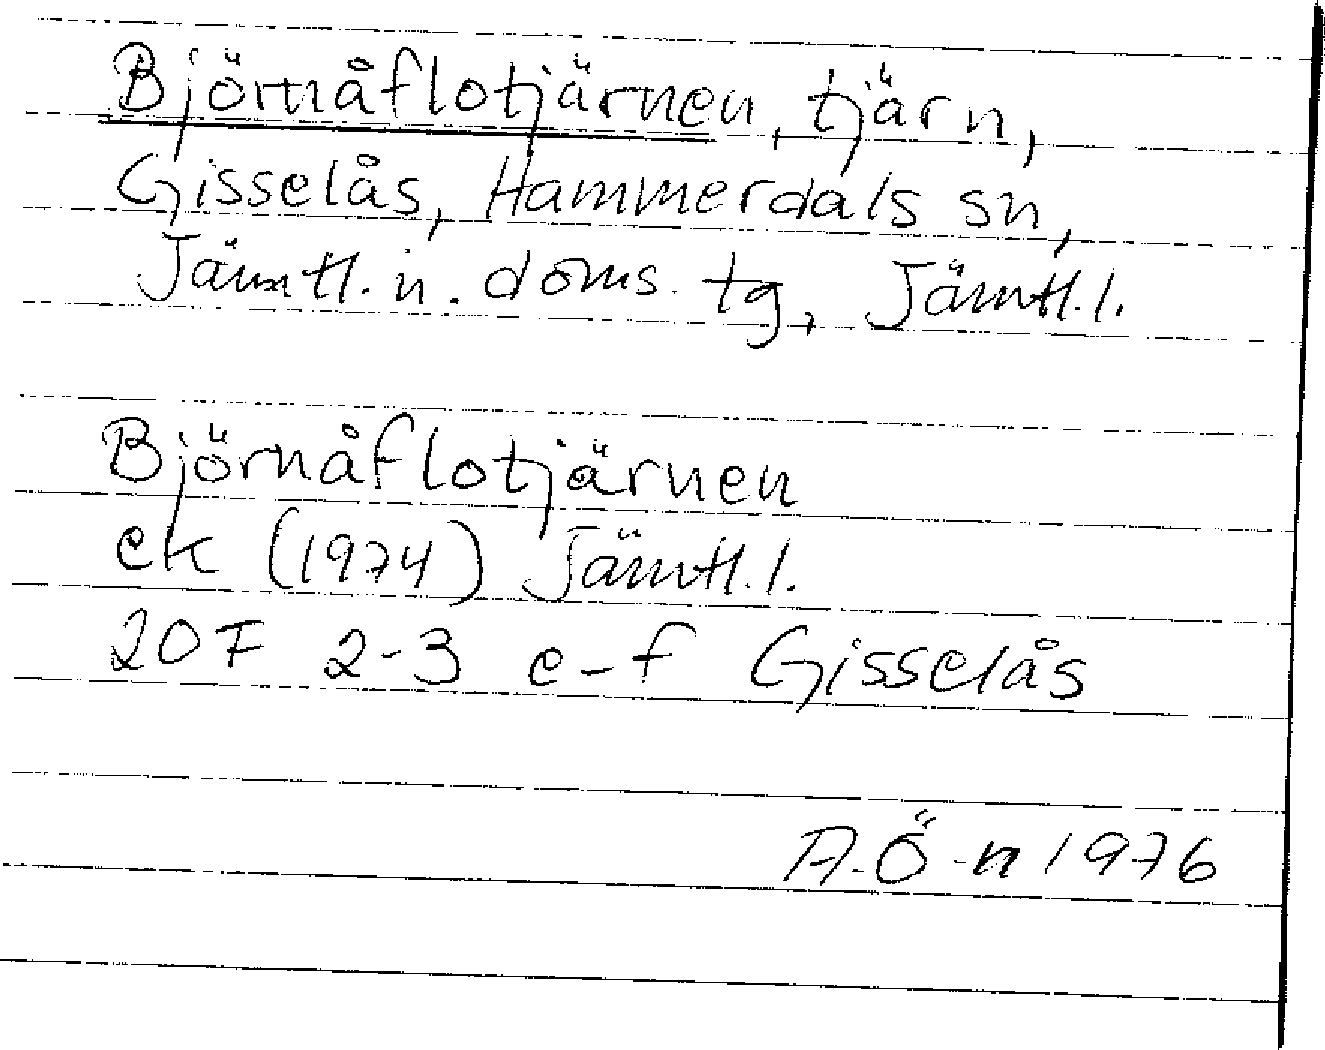 Björnåflotjärnen, tjärn,
Gisselås, Hammerdals sn,
Jämtl. n. doms. tg, Jämtl. l.
Björnåflotjärnen
ek (1974) Jämtl. l.
20F 2-3 e-f Gisselås
A. Ö-n 1976